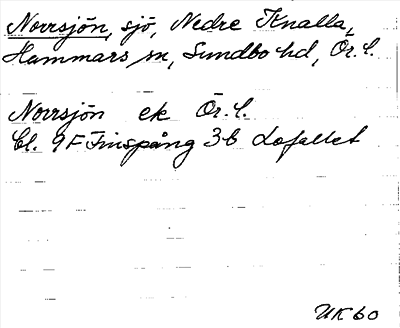 Norrsjön, sjö, Nedre Knalla,
Hammars sn, Sundbo hd, Ör. l.
Norrsjön ek Ör. l.
bl. 9F Finspång 3b Lofallet
UK 60